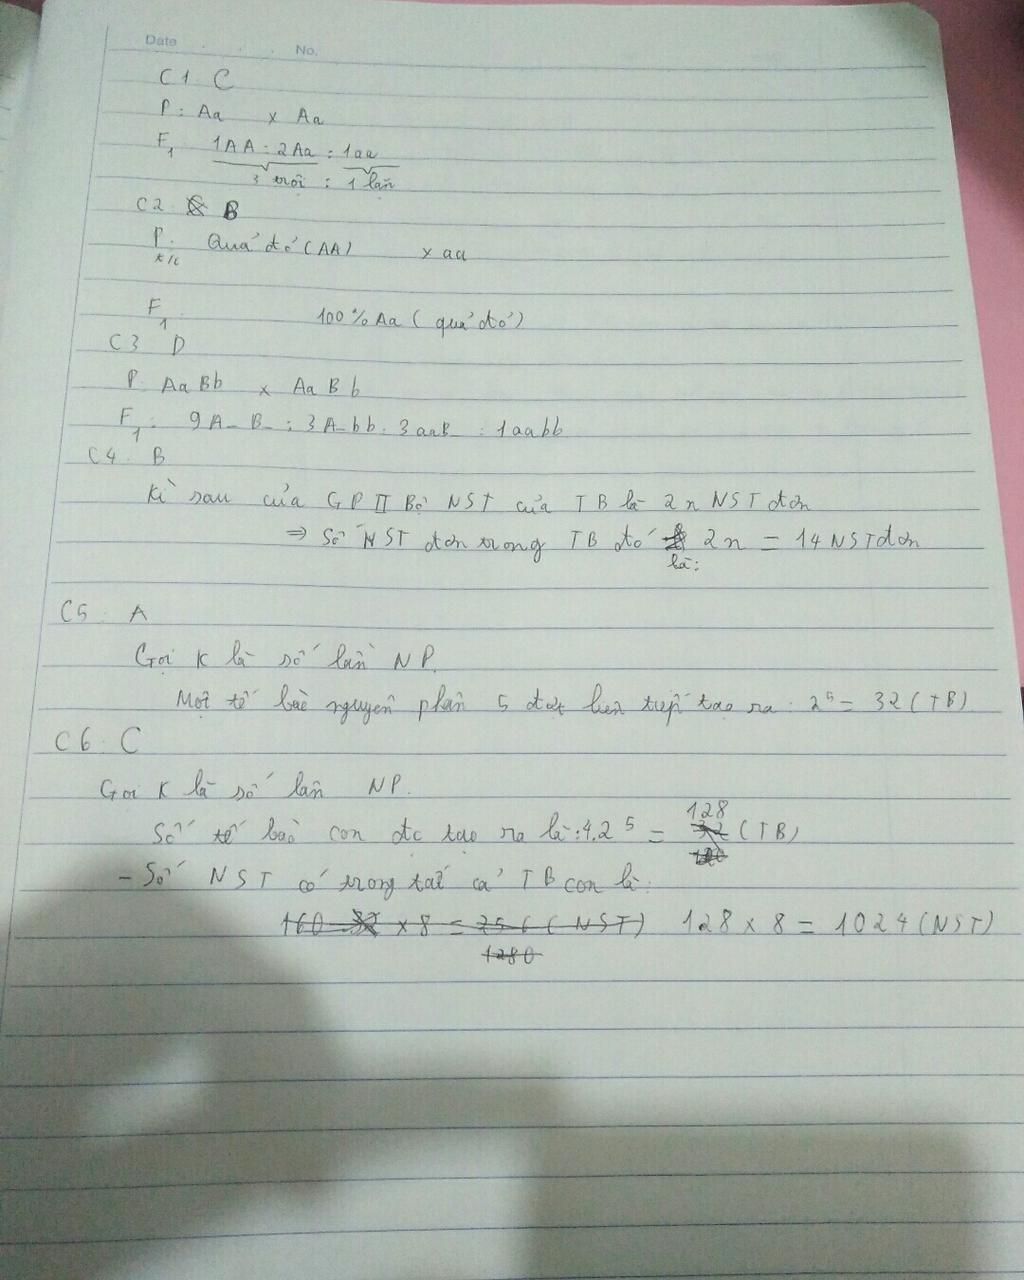 Date . . . No.
C1. C
P: Aa x Aa
F1 1AA : 2Aa : 1aa
3 trội : 1 lặn
C2 B
P: Quả đỏ (AA) x aa
t/c
F1 100% Aa (quả đỏ)
C3 D
P. AaBb x AaBb
F1: 9A-B- : 3A-bb : 3aaB- : 1aabb
C4. B
Kì sau của GP II Bộ NST của TB là 2n NST đơn
=> Số NST đơn trong TB đó là: 2n = 14 NST đơn
C5. A
Gọi K là số lần NP.
Một tế bào nguyên phân 5 đợt liên tiếp tạo ra: 2⁵ = 32 (TB)
C6. C
Gọi K là số lần NP.
Số tế bào con đc tạo ra là: 4.2⁵ = 128 (TB)
- Số NST có trong tất cả TB con là:
128 x 8 = 1024 (NST)